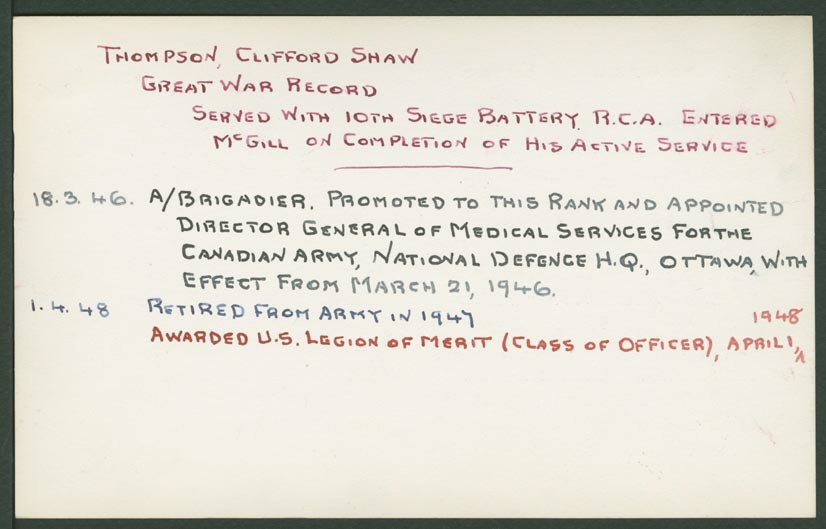 THOMPSON, CLIFFORD SHAW
GREAT WAR RECORD
SERVED WITH 10TH SIEGE BATTERY, R.C.A. ENTERED
McGILL ON COMPLETION OF HIS ACTIVE SERVICE
18.3.46. A/BRIGADIER. PROMOTED TO THIS RANK AND APPOINTED
DIRECTOR GENERAL OF MEDICAL SERVICES FOR THE
CANADIAN ARMY, NATIONAL DEFENCE H.Q., OTTAWA, WITH
EFFECT FROM MARCH 21, 1946.
1.4.48 RETIRED FROM ARMY IN 1947
1948
AWARDED U.S. LEGION OF MERIT (CLASS OF OFFICER), APRIL 1, ^